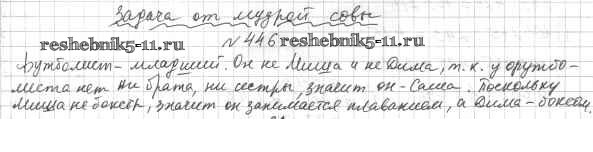 Задача от мудрой совы
reshebnik5-11.ru №446 reshebnik5-11.ru
Футболист - младший. Он не Миша и не Дима, т. к. у футбо-
листа нет ни брата, ни сестры, значит он - Саша. Поскольку
Миша не боксер, значит он занимается плаванием, а Дима - боксом.